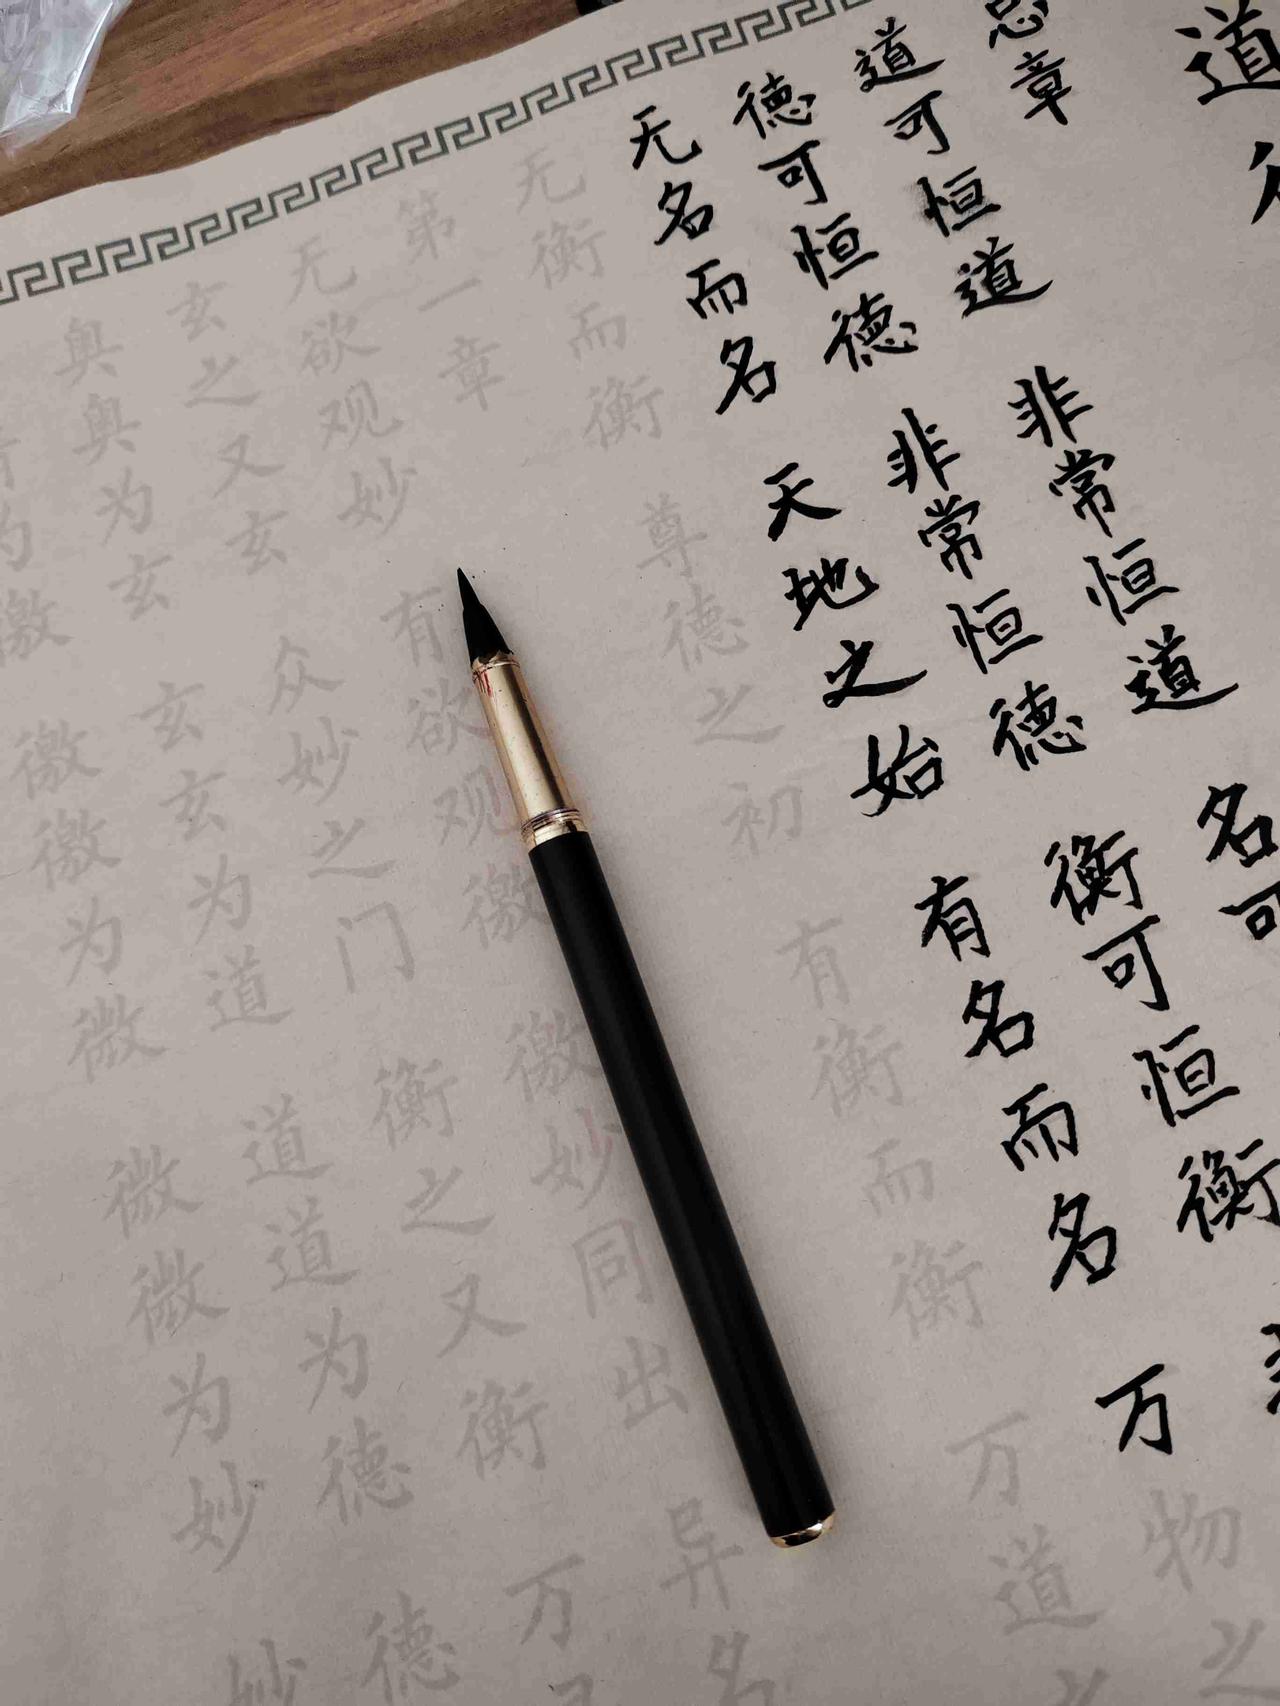 道
总章
道可恒道 非常恒道 名可
德可恒德 非常恒德 衡可恒衡
无名而名 天地之始 有名而名 万物之
无衡而衡 尊德之初 有衡而衡 万道之
第一章
无欲观妙 有欲观徼 徼妙同出 异名
玄之又玄 众妙之门 衡之又衡 万又
奥奥为玄 玄玄为道 道道为德 德
为徼 徼徼为微 微微为妙 妙